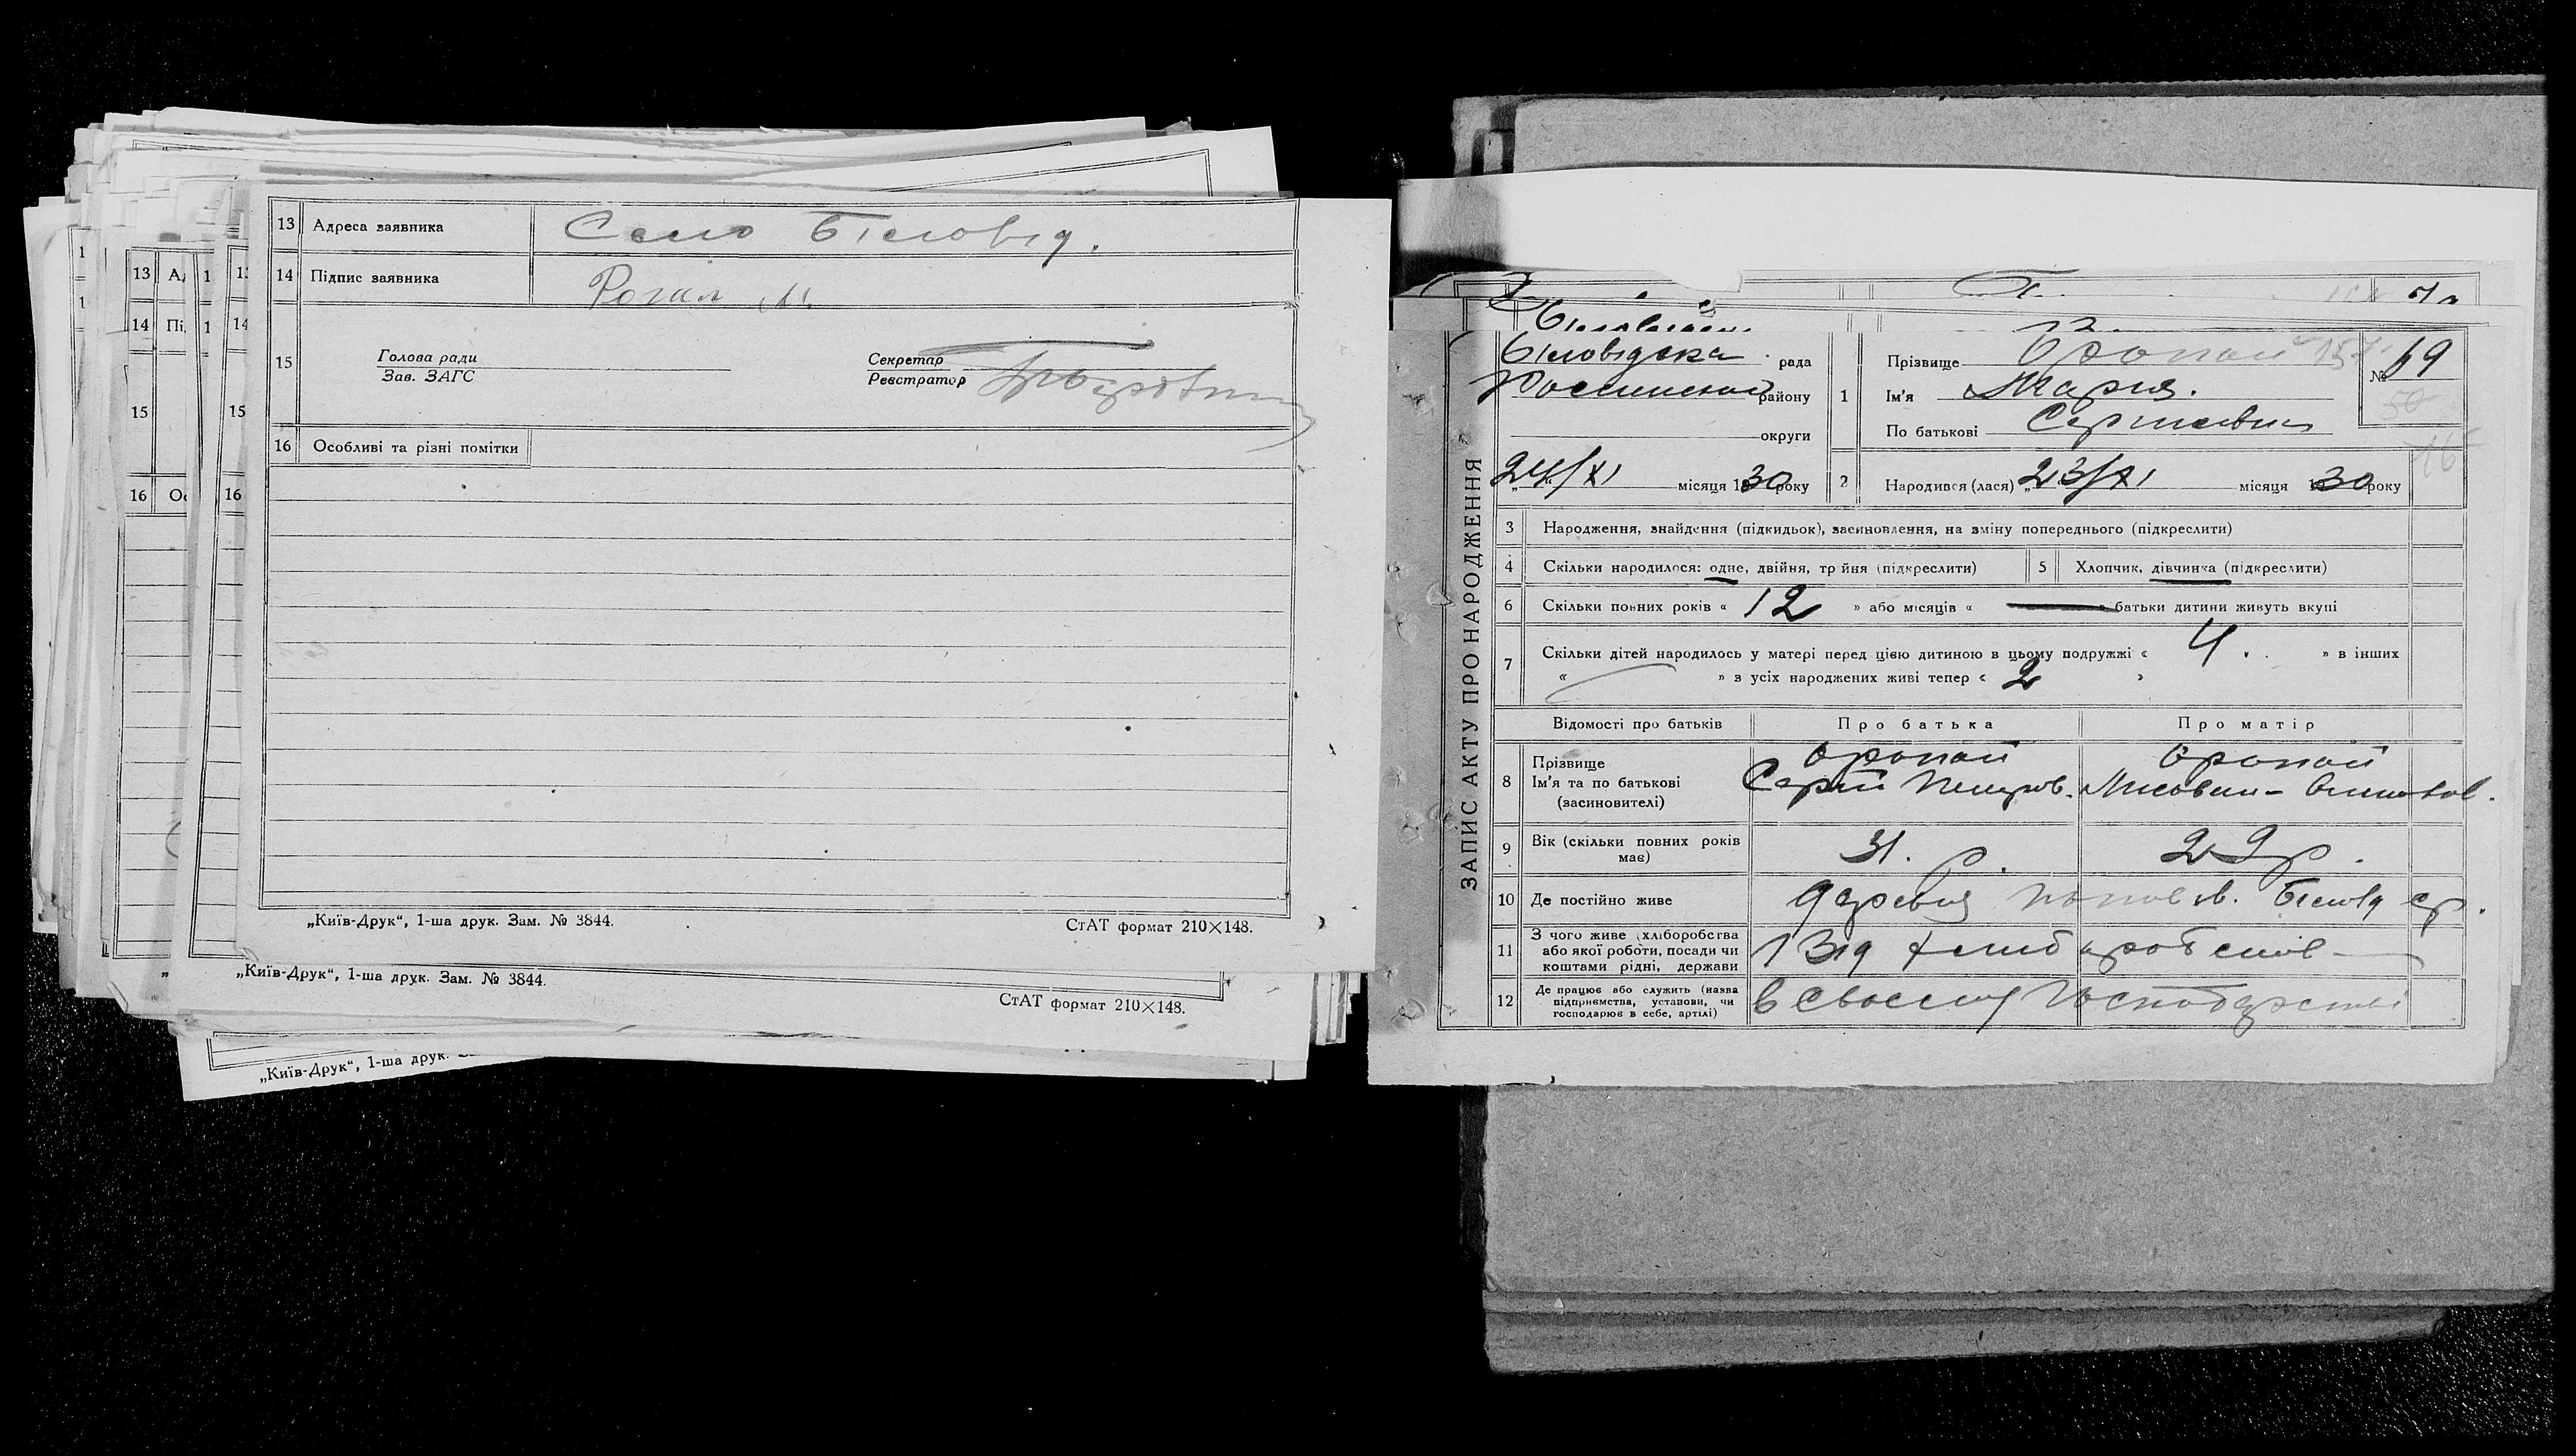 13 Адреса заявника Село Біловід.
14 Підпис заявника Рогаль М
15 Голова ради
Зав. ЗАГС
Секретар
Реєстратор
16 Особливі та різні помітки
„Київ-Друк“, 1-ша друк. Зам. № 3844.
СтАТ формат 210×148.
„Київ-Друк“, 1-ша друк. Зам. № 3844.
СтАТ формат 210×148.
„Київ-Друк“, 1-ша друк.
ЗАПИС АКТУ ПРО НАРОДЖЕННЯ
Біловідська рада
району
округи
24/XI місяця 1930 року
1 Прізвище № 69
Ім'я Мария.
По батькові Сергиевна
2 Народився (лася) 23/XI місяця 30 року
3 Народження, знайдення (підкидьок), засиновлення, на зміну попереднього (підкреслити)
4 Скільки народилося: одне, двійня, трійня (підкреслити) 5 Хлопчик, дівчинка (підкреслити)
6 Скільки повних років « 12 » або місяців « » батьки дитини живуть вкупі
7 Скільки дітей народилось у матері перед цією дитиною в цьому подружжі « 4 » в інших
« » з усіх народжених живі тепер « 2 »
Відомості про батьків Про батька Про матір
8 Прізвище
Ім'я та по батькові Сергій Петров.
(засновителі)
9 Вік (скільки повних років має) 31. р. 29 р.
10 Де постійно живе деревня Біловід ср.
11 З чого живе (хліборобства або якої роботи, посади чи коштами рідні, держави Від хліборобства
12 Де працює або служить (назва підприємства, установи, чи господарює в себе, артілі) в своему господарстві